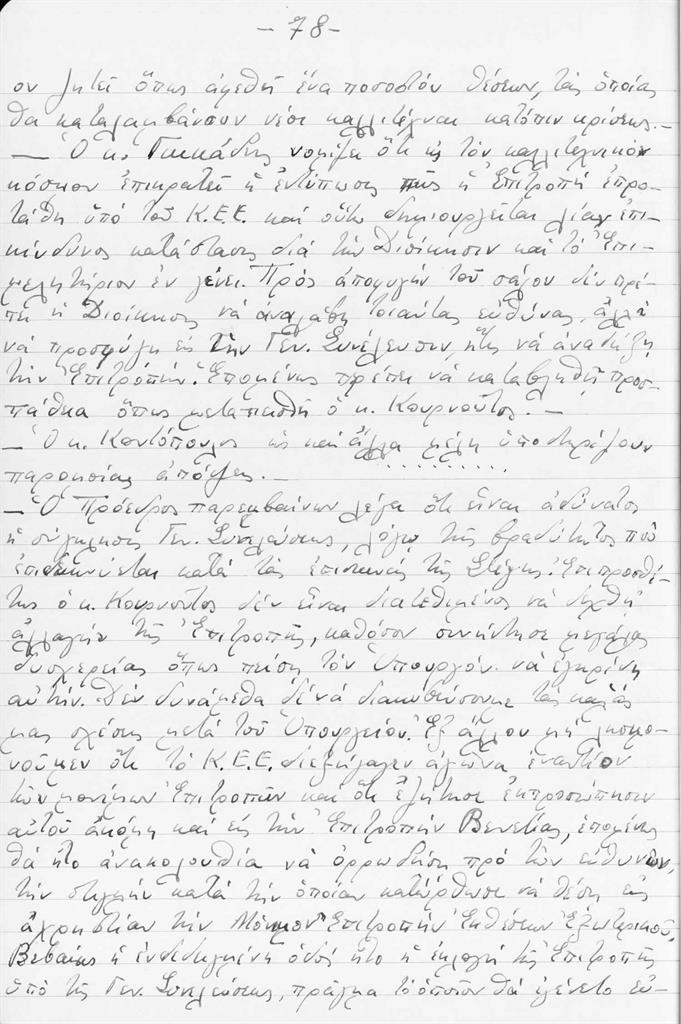 -78-
ον ζητεῖ ὅπως ἀφεθῆ ἕνα ποσοστόν θέσεων, τάς ὁποίας
θα καταλαμβάνουν νέοι καλλιτέχναι κατόπιν κρίσεως.-
- Ὁ κ. νομίζει ὅτι εἰς τόν καλλιτεχνικόν
κόσμον ἐπικρατεῖ ἡ ἐντύπωσις πῶς ἡ Ἐπιτροπή ἐπρο-
τάθη ὑπό τοῦ Κ.Ε.Ε. καί οὕτω δημιουργεῖται λίαν ἐπι-
κίνδυνος κατάστασις διά τήν Διοίκησιν καί τό Ἐπι-
μελητήριον ἐν γένει. Πρός ἀποφυγήν τοῦ σάλου δέν πρέ-
πει ἡ Διοίκησις νά ἀναλάβη τοιαύτας εὐθύνας, ἀλλά
νά προσφύγη εἰς τήν Γεν. Συνέλευσιν, ἥτις νά ἀναδείξη
τήν Ἐπιτροπήν. Ἑπομένως πρέπει νά καταβληθῆ προσ-
πάθεια ὅπως μεταπεισθῆ ὁ κ. Κουρνοῦτος.-
- Ὁ κ. Κοντόπουλος ὡς καί ἄλλα μέλη ὑποστηρίζουν
παρομοίας ἀπόψεις.- ..........
- Ὁ Πρόεδρος παρεμβαίνων λέγει ὅτι εἶναι ἀδύνατος
ἡ σύγκλησις Γεν. Συνελεύσεως, λόγω τῆς βραδύτητος πού
ἐπιδεικνύεται κατά τάς ἐπισκευάς τῆς Στέγης. Ἐπιπροσθέ-
τως ὁ κ. Κουρνοῦτος δέν εἶναι διατεθειμένος νά δεχθῆ
ἀλλαγήν τῆς Ἐπιτροπῆς, καθόσον συνήντησε μεγάλας
δυσχερείας ὅπως πείση τόν Ὑπουργόν νά ἐγκρίνη
αὐτήν. Δέν δυνάμεθα δέ νά διακυβεύσωμε τάς καλάς
μας σχέσεις μετά τοῦ Ὑπουργείου. Ἐξ ἄλλου μή λησμο-
νοῦμεν ὅτι τό Κ.Ε.Ε. διεξήγαγεν ἀγῶνα ἐναντίον
τῶν μονίμων Ἐπιτροπῶν καί ὅτι ἐζήτησε ἐκπροσώπησιν
αὐτοῦ ἀκόμη καί εἰς τήν Ἐπιτροπήν Βενετίας, ἑπομένως
θά ἦτο ἀνακολουθία νά ὀρρωδήση πρό τῶν εὐθυνῶν,
τήν στιγμήν κατά τήν ὁποίαν κατώρθωσε νά θέση εἰς
ἀχρηστίαν τήν Μόνιμον Ἐπιτροπήν Ἐκθέσεων Ἐξωτερικοῦ.
Βεβαίως ἡ ἐνδεδειγμένη ὁδός ἦτο ἡ ἐκλογή τῆς Ἐπιτροπῆς
ὑπό τῆς Γεν. Συνελεύσεως, πράγμα τό ὁποῖον θά ἐγένετο εὐ-